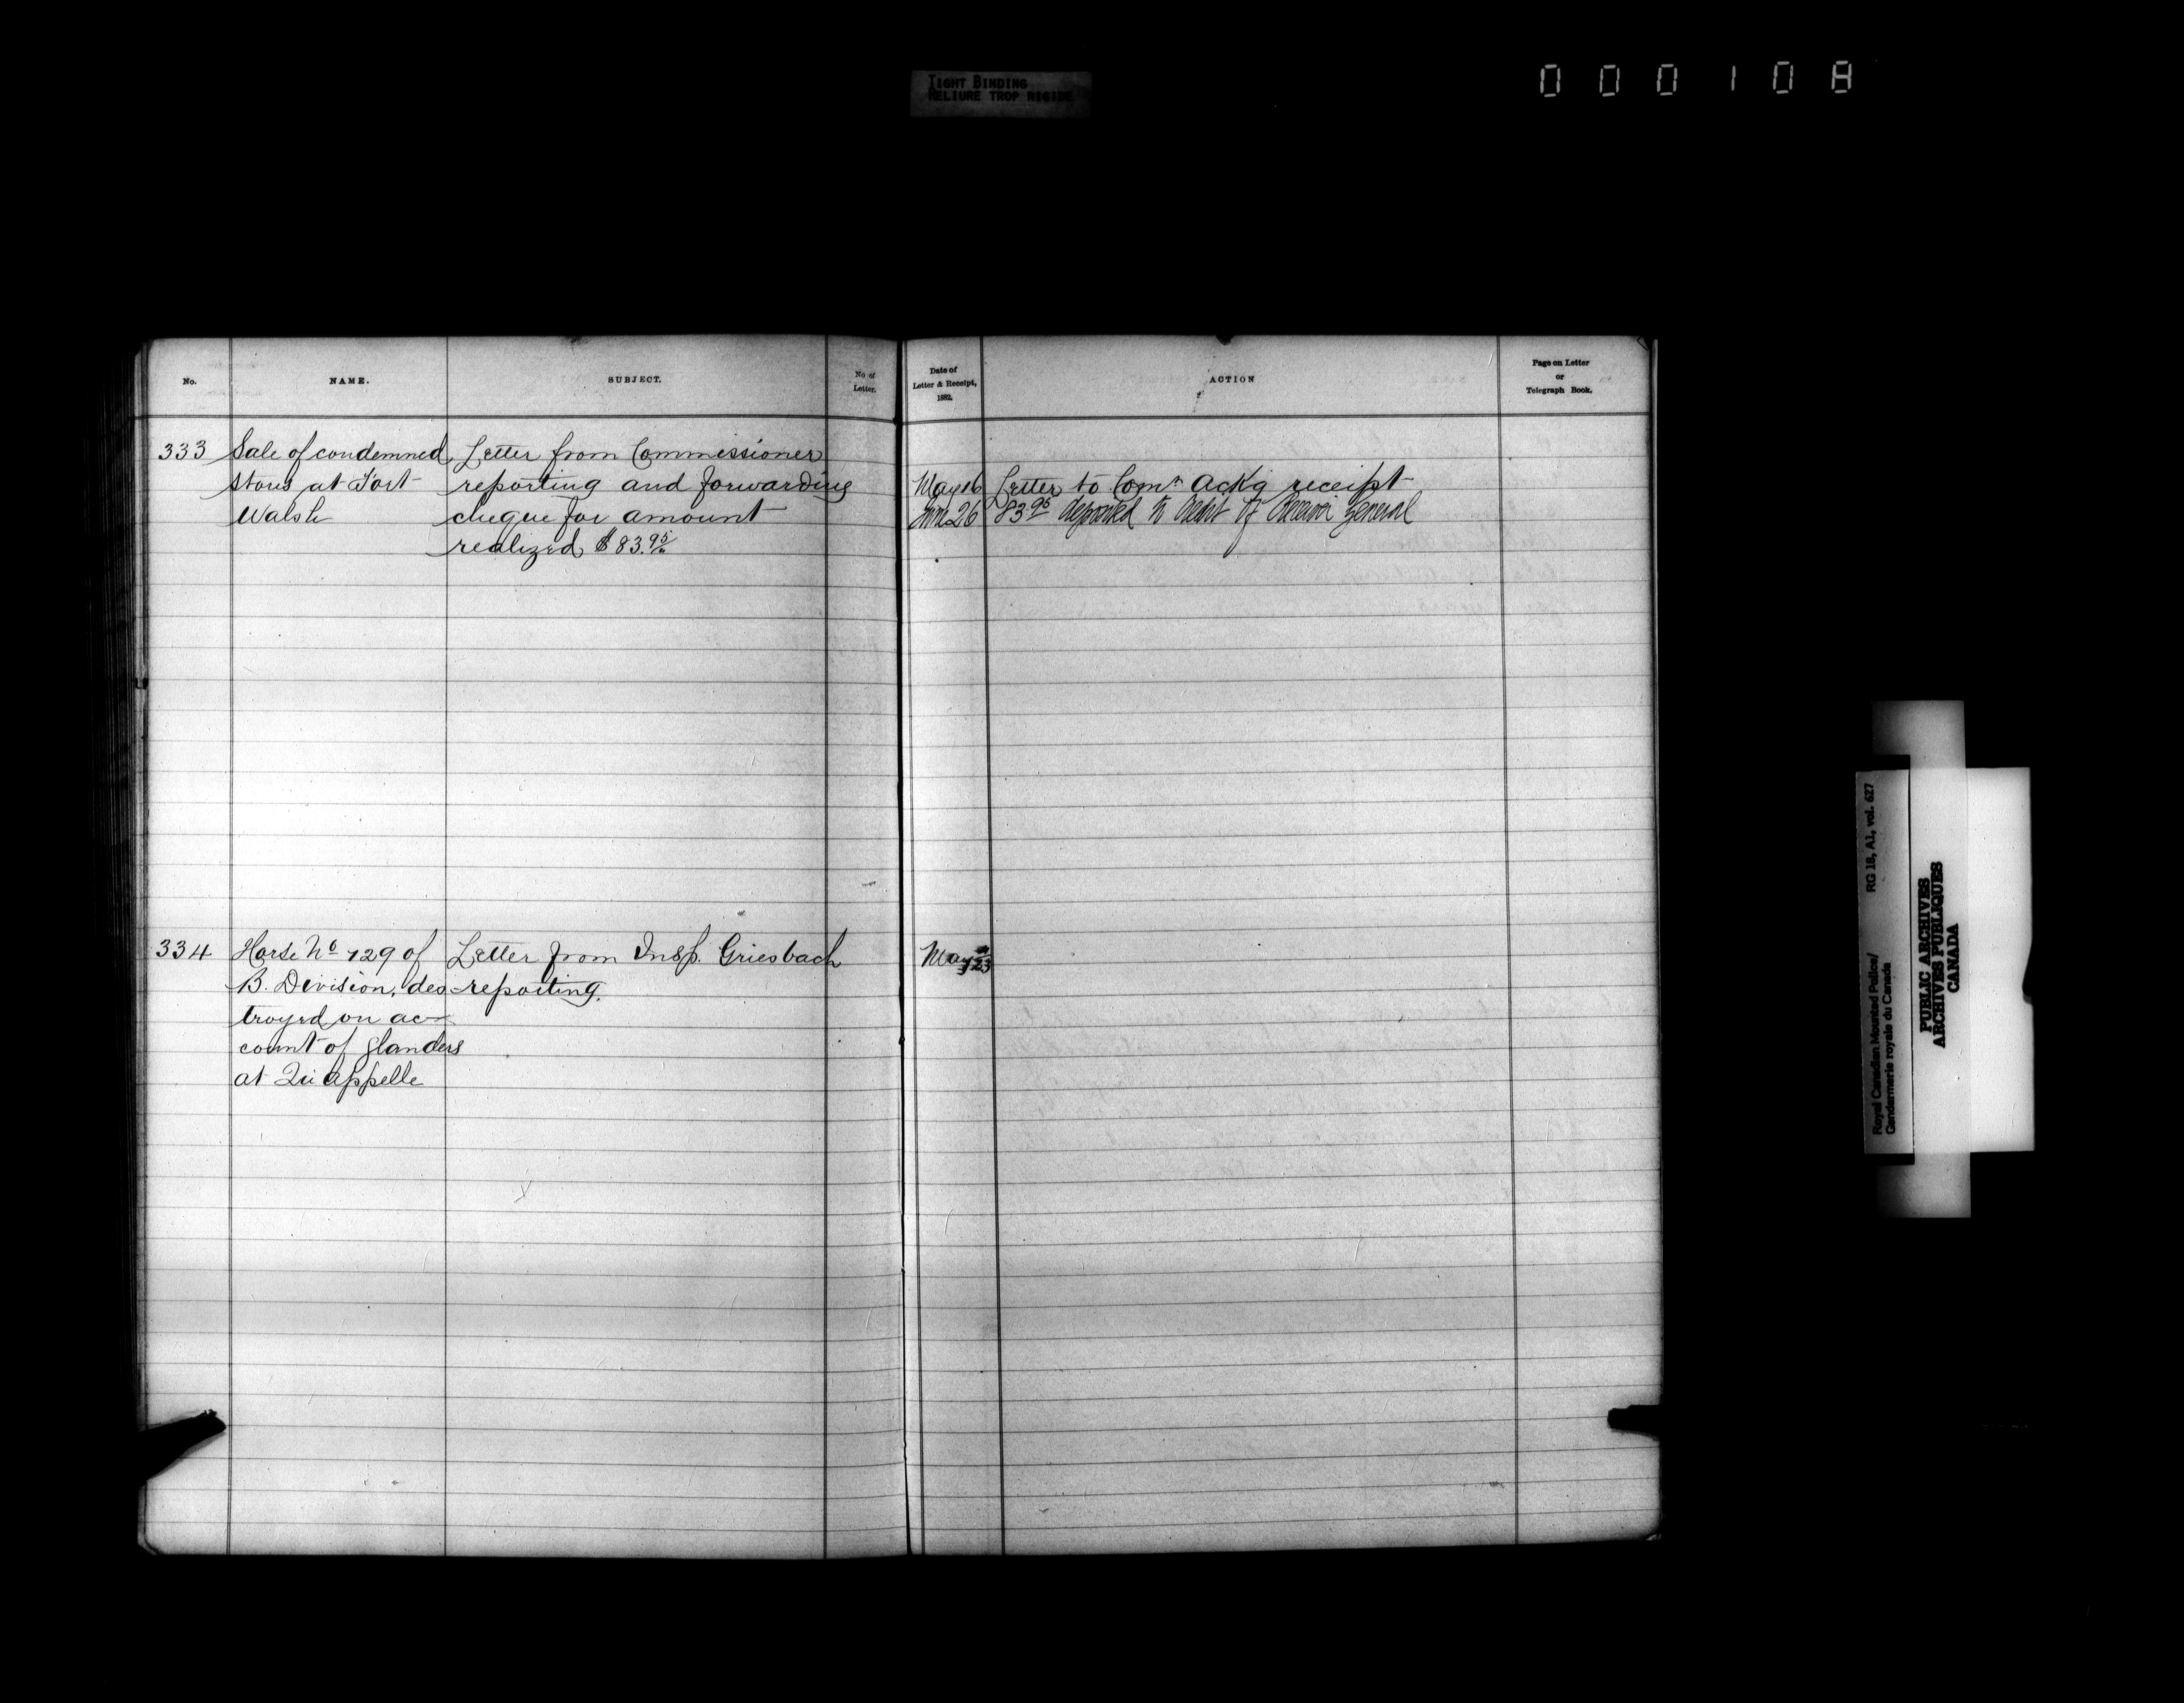 TIGHT BINDING
RELIURE TROP RIGIDE
000108
No.
NAME.
SUBJECT.
No of
Letter.
Date of
Letter & Receipt,
1882.
ACTION
Page on Letter
or
Telegraph Book.
333 Sale of condemned Letter from Commissioner
stores at Fort reporting and forwarding
Walsh cheque for amount
realized $83.95
May 16 Letter to Comr ackg receipt
June 26 83 95 deposited to Credit of Receiver General
334 Horse No 729 of Letter from Insp. Griesbach
B. Division, des- reporting.
troyed on ac-
count of glanders
at Qu'appelle
May 23
RG 18, A1, vol. 627
Royal Canadian Mounted Police/
Gendarmerie royale du Canada
PUBLIC ARCHIVES
ARCHIVES PUBLIQUES
CANADA